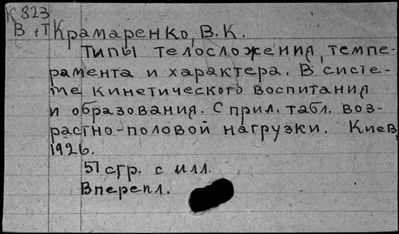 К 823
В + Т Крамаренко, В. К.
Типы телосложения, темпе-
рамента и характера. В систе-
ме кинетического воспитания
и образования. С прил. табл. воз-
растно-половой нагрузки. Киев,
1926.
51 стр. с илл.
В перепл.